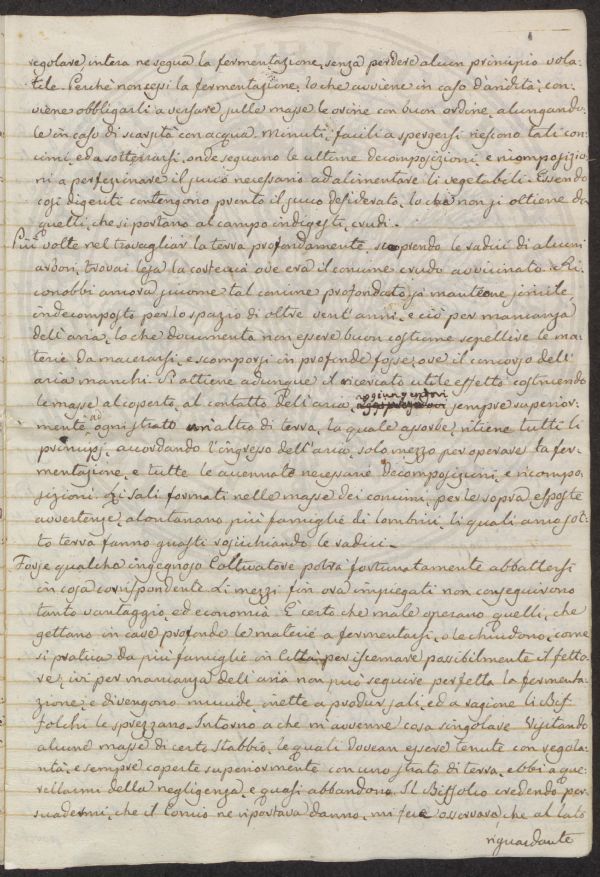 regolare intera ne segua la fermentazione, senza perdere alcun principio vola-
tile. Perchè non cessi la fermentazione, lo che avviene in caso d'aridità, con-
viene obbligarli a versare sulle masse le orine con buon ordine, alungando-
le in caso di scarsità con acqua. Minuti, facili a spergersi riescono tali con-
cimi, ed a sotterrarsi, onde seguano le ultime decomposizioni e ricomposizio-
ni a perfezionare il succo necessario ad alimentare li vegetabili. Essendo
così digeriti contengono pronto il succo desiderato, lo che non si ottiene da
quelli, che si portano al campo indigesti, crudi.
Più volte nel travagliar la terra profondamente scoprendo le radici di alcuni
arbori, trovai lesa la corteccia ove era il concime crudo avvicinato. Ri-
conobbi ancora siccome tal concime profondato si mantene simile,
indecomposto per lo spazio di oltre vent'anni, e ciò per mancanza
dell'aria, lo che documenta non essere buon costume sepellire le ma-
terie da macerarsi, e scomporsi in profonde fosse, ove il concorso dell'
aria manchi. Si attiene adunque il ricercato utile effetto costruendo
le masse al coperto, al contatto dell'aria, aggiungendovi sempre superior-
mente ad ogni strato un'altro di terra, la quale assorbe, ritiene tutti li
principj, accordando l'ingresso dell'aria, solo mezzo per operare la fer-
mentazione, e tutte le accennate necessarie decomposizioni, e ricompo-
sizioni. Li sali formati nelle masse dei concimi, per le sopra esposte
avvertenze, alontanano più famiglie di lombrici, li quali anco sot-
to terra fanno guasti rosicchiando le radici.
Forse qualche ingegnoso Coltivatore potrà fortunatamente abbattersi
in cosa corrispondente. Li mezzi fin ora impiegati non conseguirono
tanto vantaggio, ed economia. È certo che male operano quelli, che
gettano in cave profonde le materie a fermentarsi, o le chiudono, come
si pratica da più famiglie in Città per iscemare passibilmente il fetto-
re; ivi per mancanza dell'aria non può seguire perfetta la fermenta-
zione, e divengono mucide, inette a produr sali, ed a ragione li Bif-
folchi le sprezzano. Intorno a che m'avvenne cosa singolare. Visitando
alcune masse di certo stabbio, le quali dovean essere tenute con regola-
tà, e sempre coperte superiormente con uno strato di terra, ebbi a que-
rellarmi della negligenza, e quasi abbandono. Il Biffolco credendo per-
suadermi, che il Concio ne riportava danno, mi fece osservare, che al lato
riguardante